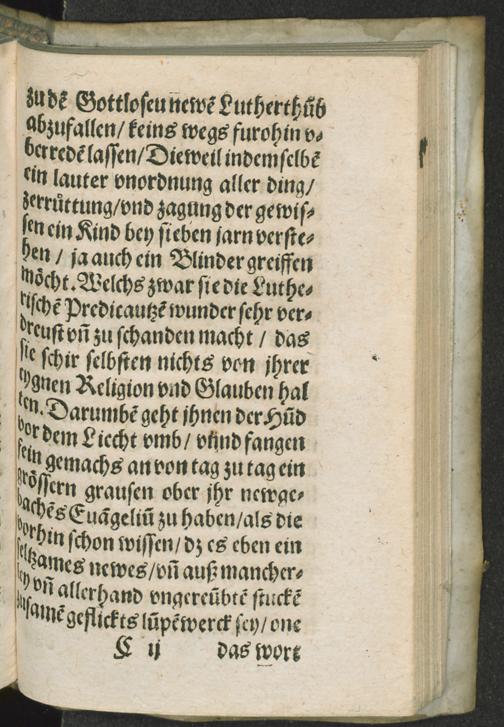 zu dẽ Gottloseu newẽ Lutherthũb
abzufallen / keins wegs furohin v⸗
berredẽ lassen / Dieweil indemselbẽ
ein lauter vnordnung aller ding /
zerrüttung / vnd zagung der gewis⸗
sen ein Kind bey sieben jarn verste⸗
hen / ja auch ein Blinder greiffen
möcht. Welchs zwar sie die Luthe⸗
rischẽ Predicautzẽ wunder sehr ver⸗
dreust vñ zu schanden macht / das
sie schir selbsten nichts von jhrer
eygnen Religion vnd Glauben hal
ten. Darumbẽ geht jhnen der Hũd
vor dem Liecht vmb / vnnd fangen
fein gemachs an von tag zu tag ein
grössern grausen ober jhr newge⸗
bachẽs Euãgeliũ zu haben / als die
vorhin schon wissen / dz es eben ein
seltzames newes / vñ auß mancher⸗
ley vñ allerhand vngereübtẽ stuckẽ
zusamẽ geflickts lũpẽwerck sey / one
C ij das wort